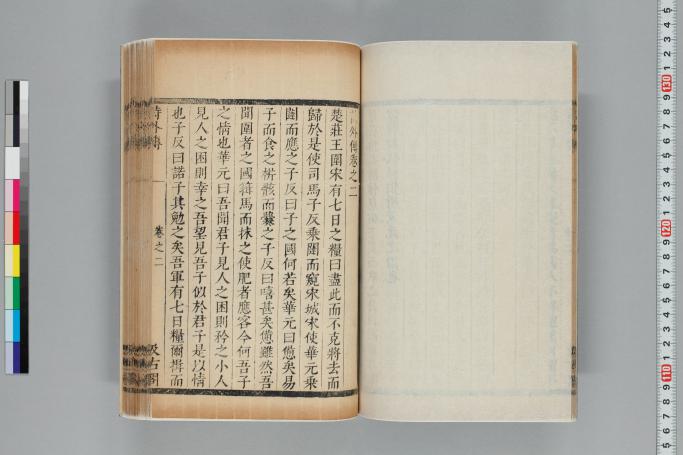 詩外傳卷之二
楚莊王圍宋有七日之糧曰盡此而不克將去而
歸於是使司馬子反乘闉而窺宋城宋使華元乘
闉而應之子反曰子之國何若矣華元曰憊矣易
子而食之析骸而爨之子反曰嘻甚矣憊雖然吾
聞圍者之國箝馬而秣之使肥者應客今何吾子
之情也華元曰吾聞君子見人之困則矜之小人
見人之困則幸之吾望見吾子似於君子是以情
也子反曰諾子其勉之矣吾軍有七日糧爾揖而
詩外傳
卷之二
汲古閣
130
120
110